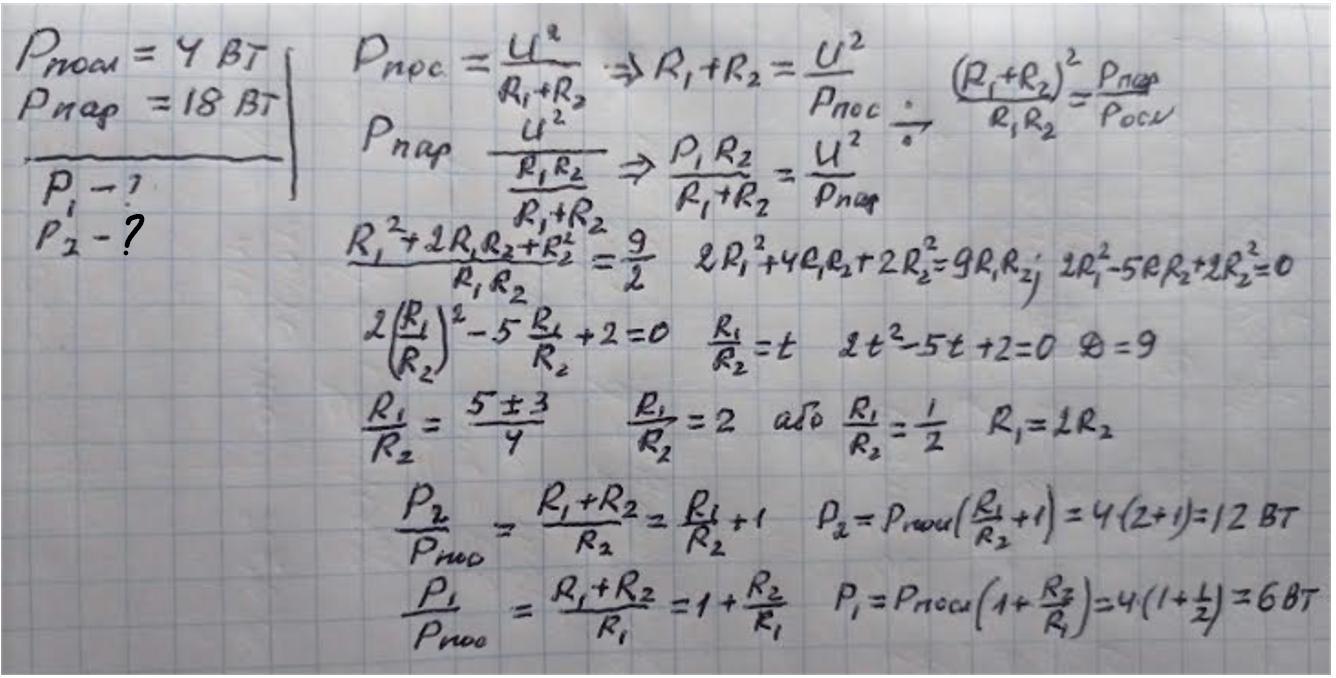 Pпосл = 4 Вт
Pпар = 18 Вт
P₁ - ?
P₂ - ?
Pпос = U²/(R₁+R₂) ⇒ R₁+R₂ = U²/Pпос
Pпар U²/(R₁R₂/(R₁+R₂)) ⇒ P₁R₂/(R₁+R₂) = U²/Pпар
÷ → (R₁+R₂)²/(R₁R₂) = Pпар/Pосл
(R₁²+2R₁R₂+R₂²)/(R₁R₂) = 9/2 2R₁²+4R₁R₂+2R₂²=9R₁R₂; 2R₁²-5R₁R₂+2R₂²=0
2(R₁/R₂)² - 5 R₁/R₂ + 2 = 0 R₁/R₂ = t 2t²-5t+2=0 D=9
R₁/R₂ = (5±3)/4 R₁/R₂ = 2 або R₁/R₂ = 1/2 R₁=2R₂
P₂/Pпос = (R₁+R₂)/R₂ = R₁/R₂ + 1 P₂ = Pпосл(R₁/R₂ + 1) = 4·(2+1) = 12 Вт
P₁/Pпос = (R₁+R₂)/R₁ = 1 + R₂/R₁ P₁ = Pпосл(1 + R₂/R₁) = 4·(1 + 1/2) = 6 Вт